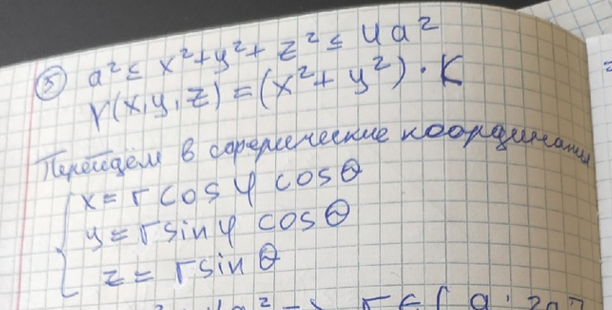 ⑤ a² ≤ x²+y²+z² ≤ 4a²
γ(x,y,z) = (x²+y²)·K
Перейдём в сферические координаты
{ x = r cosφ cosθ
y = r sinφ cosθ
z = r sinθ
r ∈ [a; 2a]